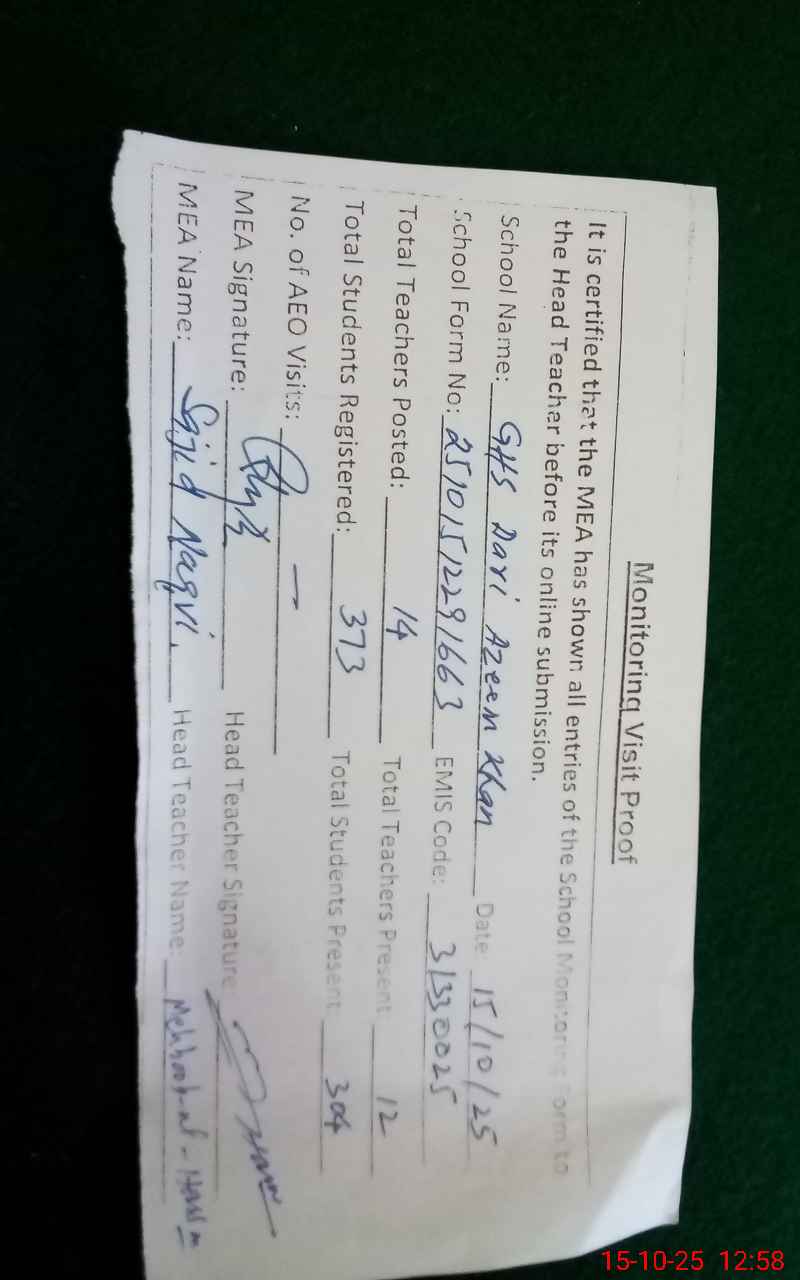 Monitoring Visit Proof
It is certified that the MEA has shown all entries of the School Monitoring Form to
the Head Teacher before its online submission.
School Name: GHS Dari Azeem Khan Date 15/10/25
School Form No: 25101512291663 EMIS Code: 31330025
Total Teachers Posted: 14 Total Teachers Present 12
Total Students Registered: 373 Total Students Present 304
No. of AEO Visits: —
MEA Signature: Head Teacher Signature
MEA Name: Sajid Naqvi. Head Teacher Name: Mehboob-ul-Hassan
15-10-25 12:58